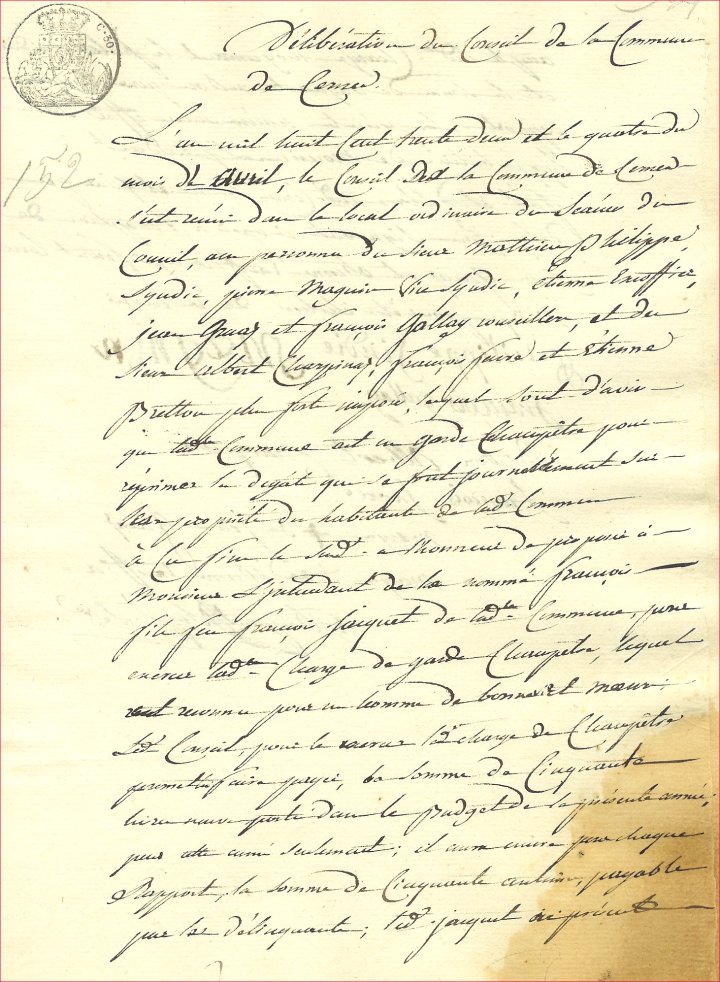 C. 50.
Délibération du Conseil de la Commune
de Cernex.
152
L'an mil huit Cent trente deux et le quatre du
mois d'avril, le Conseil de la Commune de Cernex
s'est réuni dans le local ordinaire des Séances du
Conseil, aux personnes des sieurs Mathieu Philippe,
Syndic, pierre Magnin Vice Syndic, étienne Excoffier,
jean Graaz et françois Gallay conseillers, et des
sieurs albert Charpinaz, françois favre et Etienne
Bretton plus forts imposés, lesquels sont d'avis
que ladte Commune ait un garde Champêtre pour
réprimer les dégats qui se font journellement sur
les propriétés des habitants de ladte Commune
à Ce fin le susdt a l'honneur de proposer à
Monsieur L'jntendant de le nommé françois
fils feu françois jacquet de ladte Commune, pour
exercer ladte Charge de garde Champêtre, lequel
est reconnu pour un homme de bonnes et moeurs;
Ledt Conseil, pour le exercer ladte charge de Champêtre
promet faire payer, la somme de Cinquante
livres neuves portée dans le Budget de la présente année,
pour cette année seulement; il aura encore pour chaque
Rapport, la somme de Cinquante centimes, payable
par les délinquants; ledt jacquet ici présent